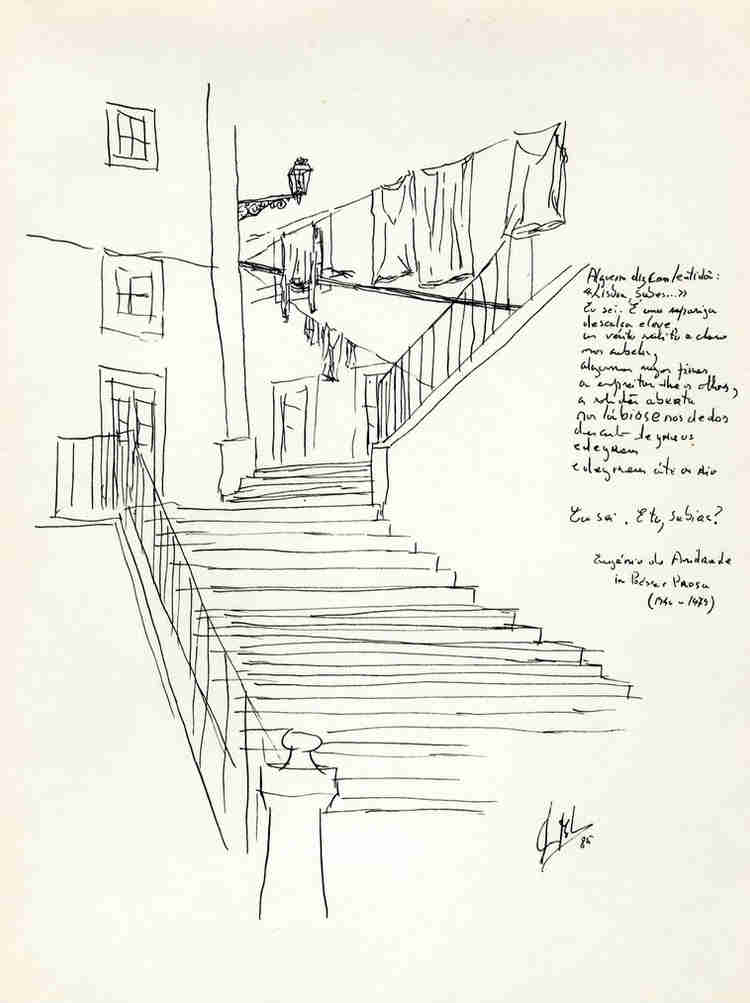 Alguém diz com lentidão:
«Lisboa, sabes...»
Eu sei. É uma rapariga
descalça e leve,
um vento súbito e claro
nos cabelos,
algumas rugas finas
a espreitar-lhe os olhos,
a solidão aberta
nos lábios e nos dedos
descendo degraus
e degraus
e degraus até ao rio
Eu sei. E tu, sabias?
Eugénio de Andrade
in Poesia e Prosa
85